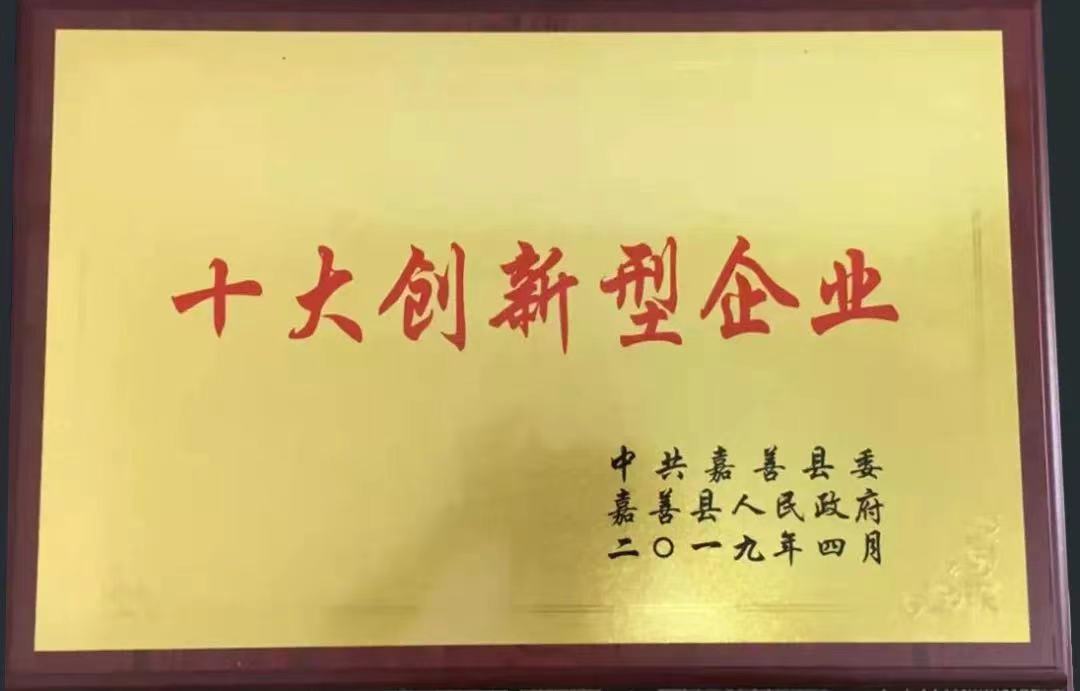 十大创新型企业
中共嘉善县委
嘉善县人民政府
二〇一九年四月